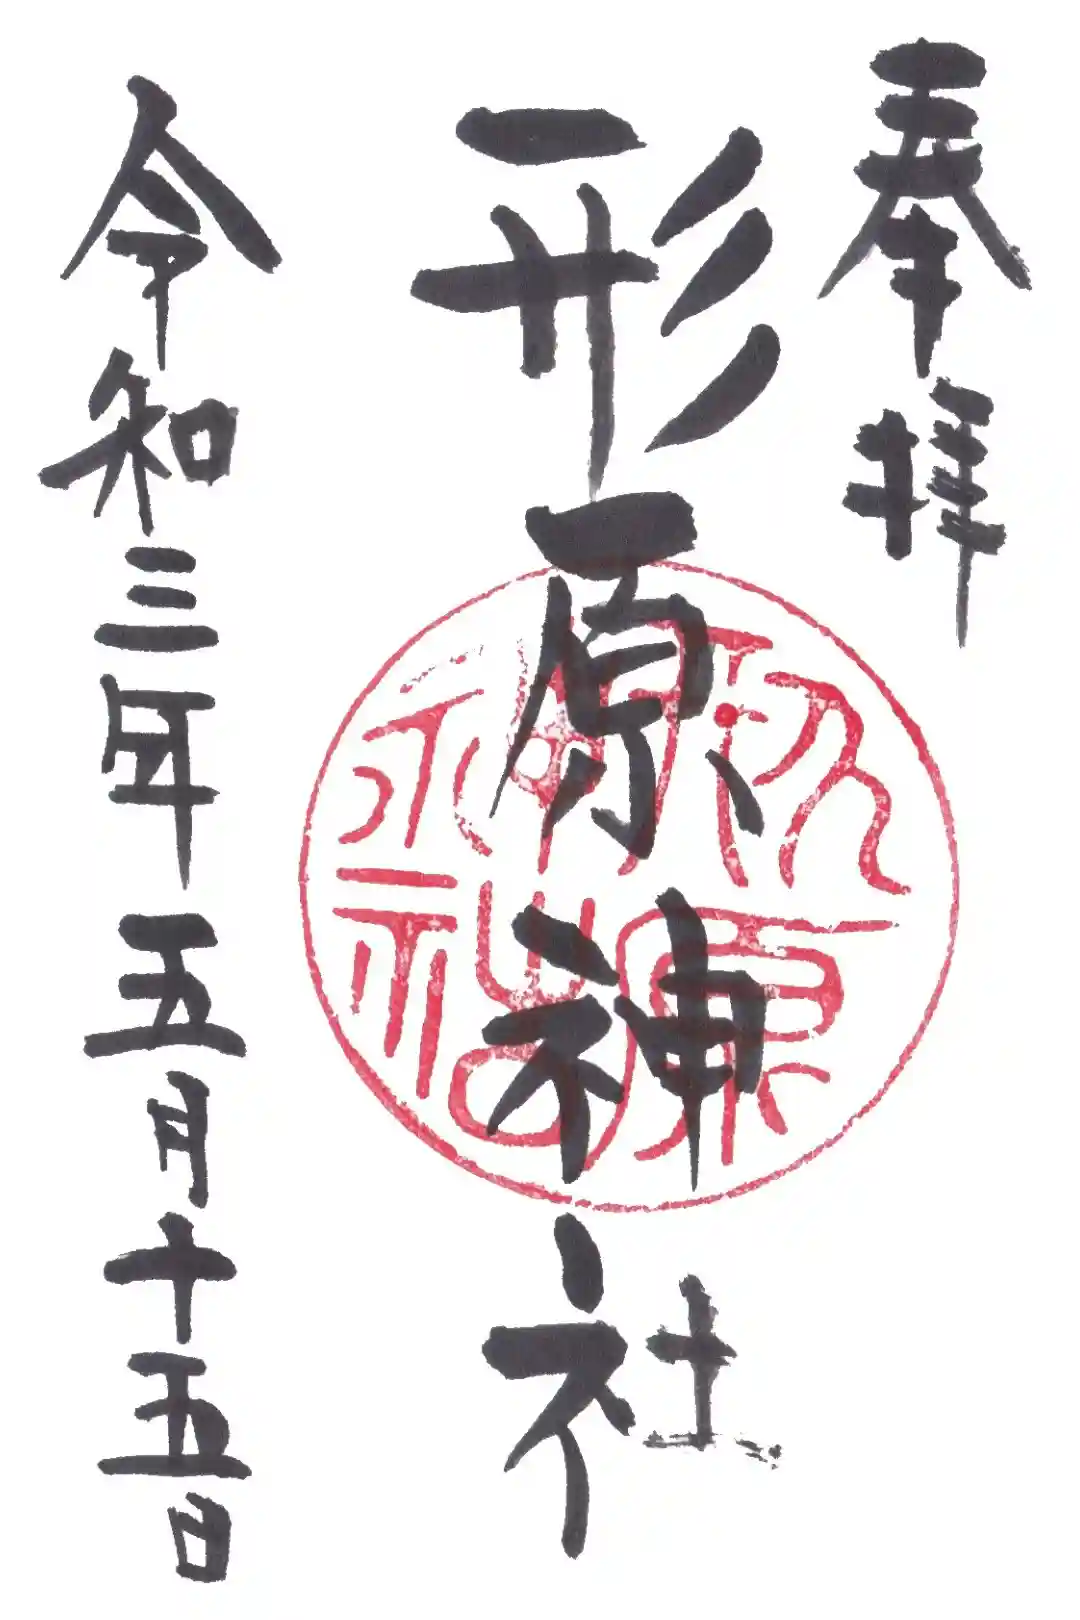 奉拝
形原神社
令和三年五月十五日